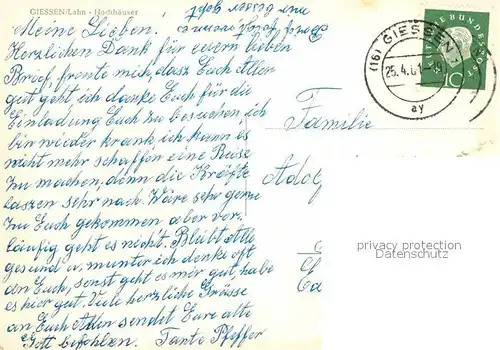 GIESSEN/Lahn - Hochhäuser
Meine Lieben!
Herzlichen Dank für euern lieben
Brief, freute mich, dasz Euch Allen
gut geht, ich danke Euch für die
Einladung Euch zu besuchen, ich
bin wieder krank, ich kann es
nicht mehr schaffen eine Reise
zu machen, denn die Kräfte
laszen sehr nach. Wäre sehr gerne
zu Euch gekommen aber vor,
läufig geht es nicht. Bleibt Alle
gesund u, munter ich denke oft
an Euch, sonst geht es mir gut, habe
es hier gut. Viele herzliche Grüsse
an Euch Allen sendet Eure alte
Gott befohlen. Tante Pfeffer
mir besser geht
DEUTSCHE BUNDESPOST
10
(16) GIESSEN
25.4.61-19
ay
Familie
Adolf
privacy protection
Datenschutz